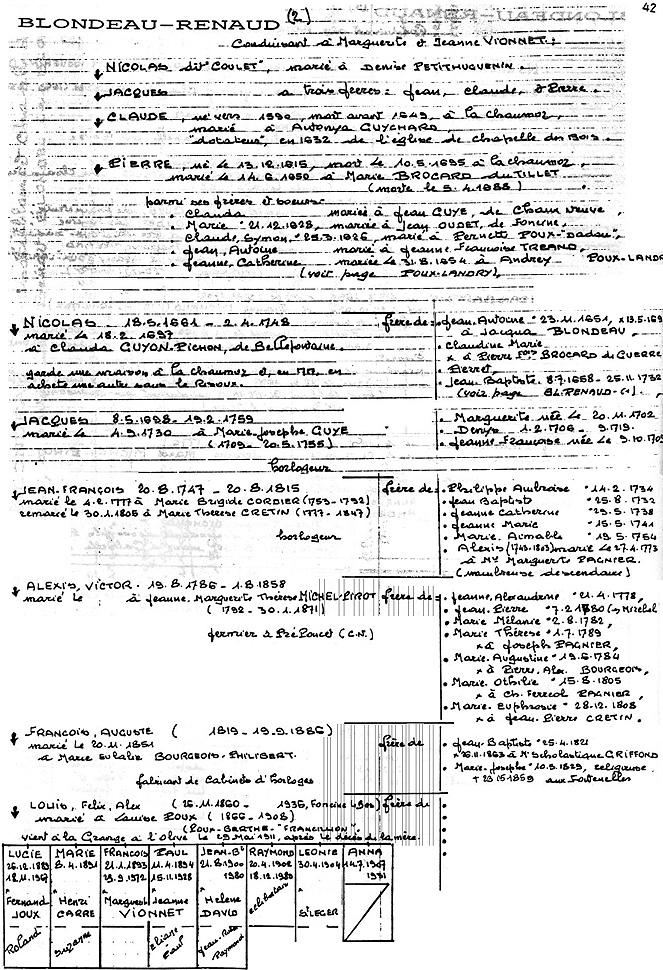 42
BLONDEAU-RENAUD (2)
Conduisant à Marguerite et Jeanne VIONNET:
NICOLAS dit "COULET", marié à Denise PETITHUGUENIN.
JACQUES a trois frères: Jean, Claude, et Pierre.
CLAUDE, né vers 1590, mort avant 1649, à la Chaumoz,
marié à Antonya GUYCHARD
"dotateur", en 1632 de l'église de Chapelle des Bois.
PIERRE, né le 13.12.1615, mort le 10.5.1695 à la Chaumoz,
marié le 14.6.1650 à Marie BROCARD du TILLET
(morte le 5.4.1688)
parmi ses frères et soeurs:
. Clauda mariée à Jean GUYE, de Chaux Neuve,
. Marie °21.12.1628, mariée à Jean OUDET, de Foncine,
. Claude, Symon, °25.3.1626, marié à Pernette POUX-"Dadou",
. Jean, Antoine marié à Jeanne Françoise TREAND,
. Jeanne, Catherine mariée le 3.8.1654 à Andrey POUX-LANDRY
(voir page POUX-LANDRY),
NICOLAS 18.5.1661 - 2.4.1748
marié le 18.2.1697
à Clauda GUYON-PICHON, de Bellefontaine.
garde une maison à la Chaumoz et, en en
achète une autre sous le Risoux.
frère de: . Jean-Antoine °23.11.1651, x13.5.169
à Jacqua BLONDEAU,
. Claudine Marie
x à Pierre Fois BROCARD du GUERRE
. Pierret,
. Jean Baptiste 8.7.1658 - 25.11.1732
(voir page BL.RENAUD-(1).
JACQUES 8.5.1698 - 19.2.1759
marié le 4.9.1730 à Marie-Josephe GUYE
(1709 - 20.5.1755)
horlogeur
. Marguerite née le 20.11.1702
. Denys 1.2.1706 - 9.719.
. Jeanne-Françoise née le 9.10.1709
JEAN-FRANÇOIS 20.8.1747 - 20.8.1815
marié le 1.2.1777 à Marie Brigide CORDIER (1753-1792)
remarié le 30.1.1805 à Marie Thérèse CRETIN (1777-1847)
horlogeur
frère de: . Philippe Ambroise °14.2.1734
. Jean Baptist °25.8.1732
. Jeanne Catherine °29.5.1738
. Jeanne Marie °15.5.1741
. Marie. Aimable °19.5.1764
. Alexis (1743.1803) marié le 27.4.1773
à Mie Marguerite PAGNIER.
(nombreuse descendance)
ALEXIS, VICTOR. 19.8.1786 - 1.8.1858
marié le : à Jeanne. Marguerite Thérèse MICHEL-PIROT
(1792 - 30.1.1871)
fermier à Pré Poncet (C.N.)
frère de: . Jeanne, Alexandrine °21.4.1778,
. Jean. Pierre °7.2.1780
. Marie Mélanie °2.8.1782,
. Marie Thérèse °1.7.1789
x à Joseph PAGNIER,
. Marie. Augustine °19.6.1784
x à Pierre. Alex. BOURGEOIS,
. Marie. Othilie °15.8.1805
x à Ch. Ferreol PAGNIER,
. Marie. Euphrosie °28.12.1808
x à Jean. Pierre CRETIN.
FRANÇOIS, AUGUSTE (1819 - 19.9.1886)
marié le 20.11.1851
à Marie Eulalie BOURGEOIS-PHILIBERT.
fabricant de Cabinets d'horloges
frère de . Jean-Baptiste °25.4.1821
à Mie Scholastique GRIFFOND
. Marie-Josephe °10.9.1829, religieuse
+ 1859 aux Fontenelles
LOUIS, Felix, Alex (26.11.1860 - 1935, Foncine
marié à Louise POUX (1866 - 1908)
frère de
(POUX-BERTHE-"FRANCILLION")
vient à la Grange à l'Olive le 29 Mai 1911, après le décès de la mère.
LUCIE MARIE FRANÇOIS PAUL JEAN-Bte RAYMOND LEONIE ANNA
26.12.1889 8.4.1891 21.1.1893 11.4.1894 21.8.1900 20.4.1902 30.4.1904 14.7.1907
18.11.1967 29.9.1972 15.11.1928 1980 18.12.1980 1971
Fernand Henri Marguerite Jeanne Helene célibataire
JOUX CARRE VIONNET DAVID St LEGER
Roland Suzanne Eliane Jean-
Paul Raymond